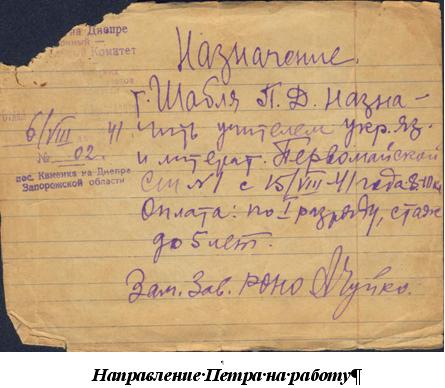 на Днепре
Комитет
6/VIII 41
№ 02
пос. Каменка на Днепре
Запорожской области
Назначение.
г. Шабля П. Д. назна-
чить учителем укр. яз.
и литерат. Первомайской
СШ №1 с 15/VIII-41 года
Оплата: по I разряду, стаж
до 5 лет.
Зам. Зав. РОНО Чуйко.
Направление·Петра·на·работу¶